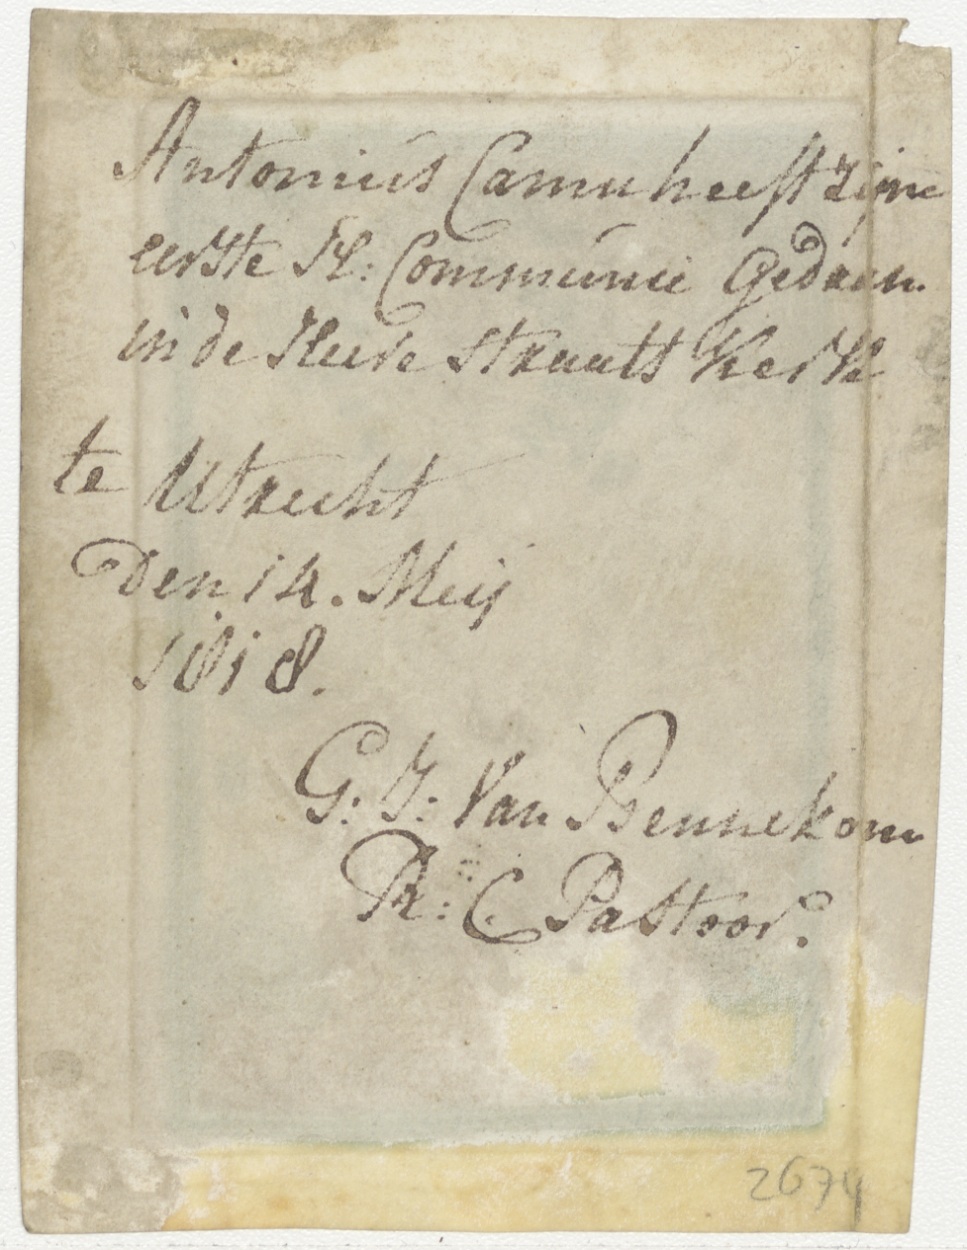 Antonius Camu heeft zijne
eerste H: Communie Gedaen.
in de Heere Straats Kerk
te Utrecht
Den 14. Meij
1818.
G: J: Van Bennekom
R: C. Pastoor.
2674